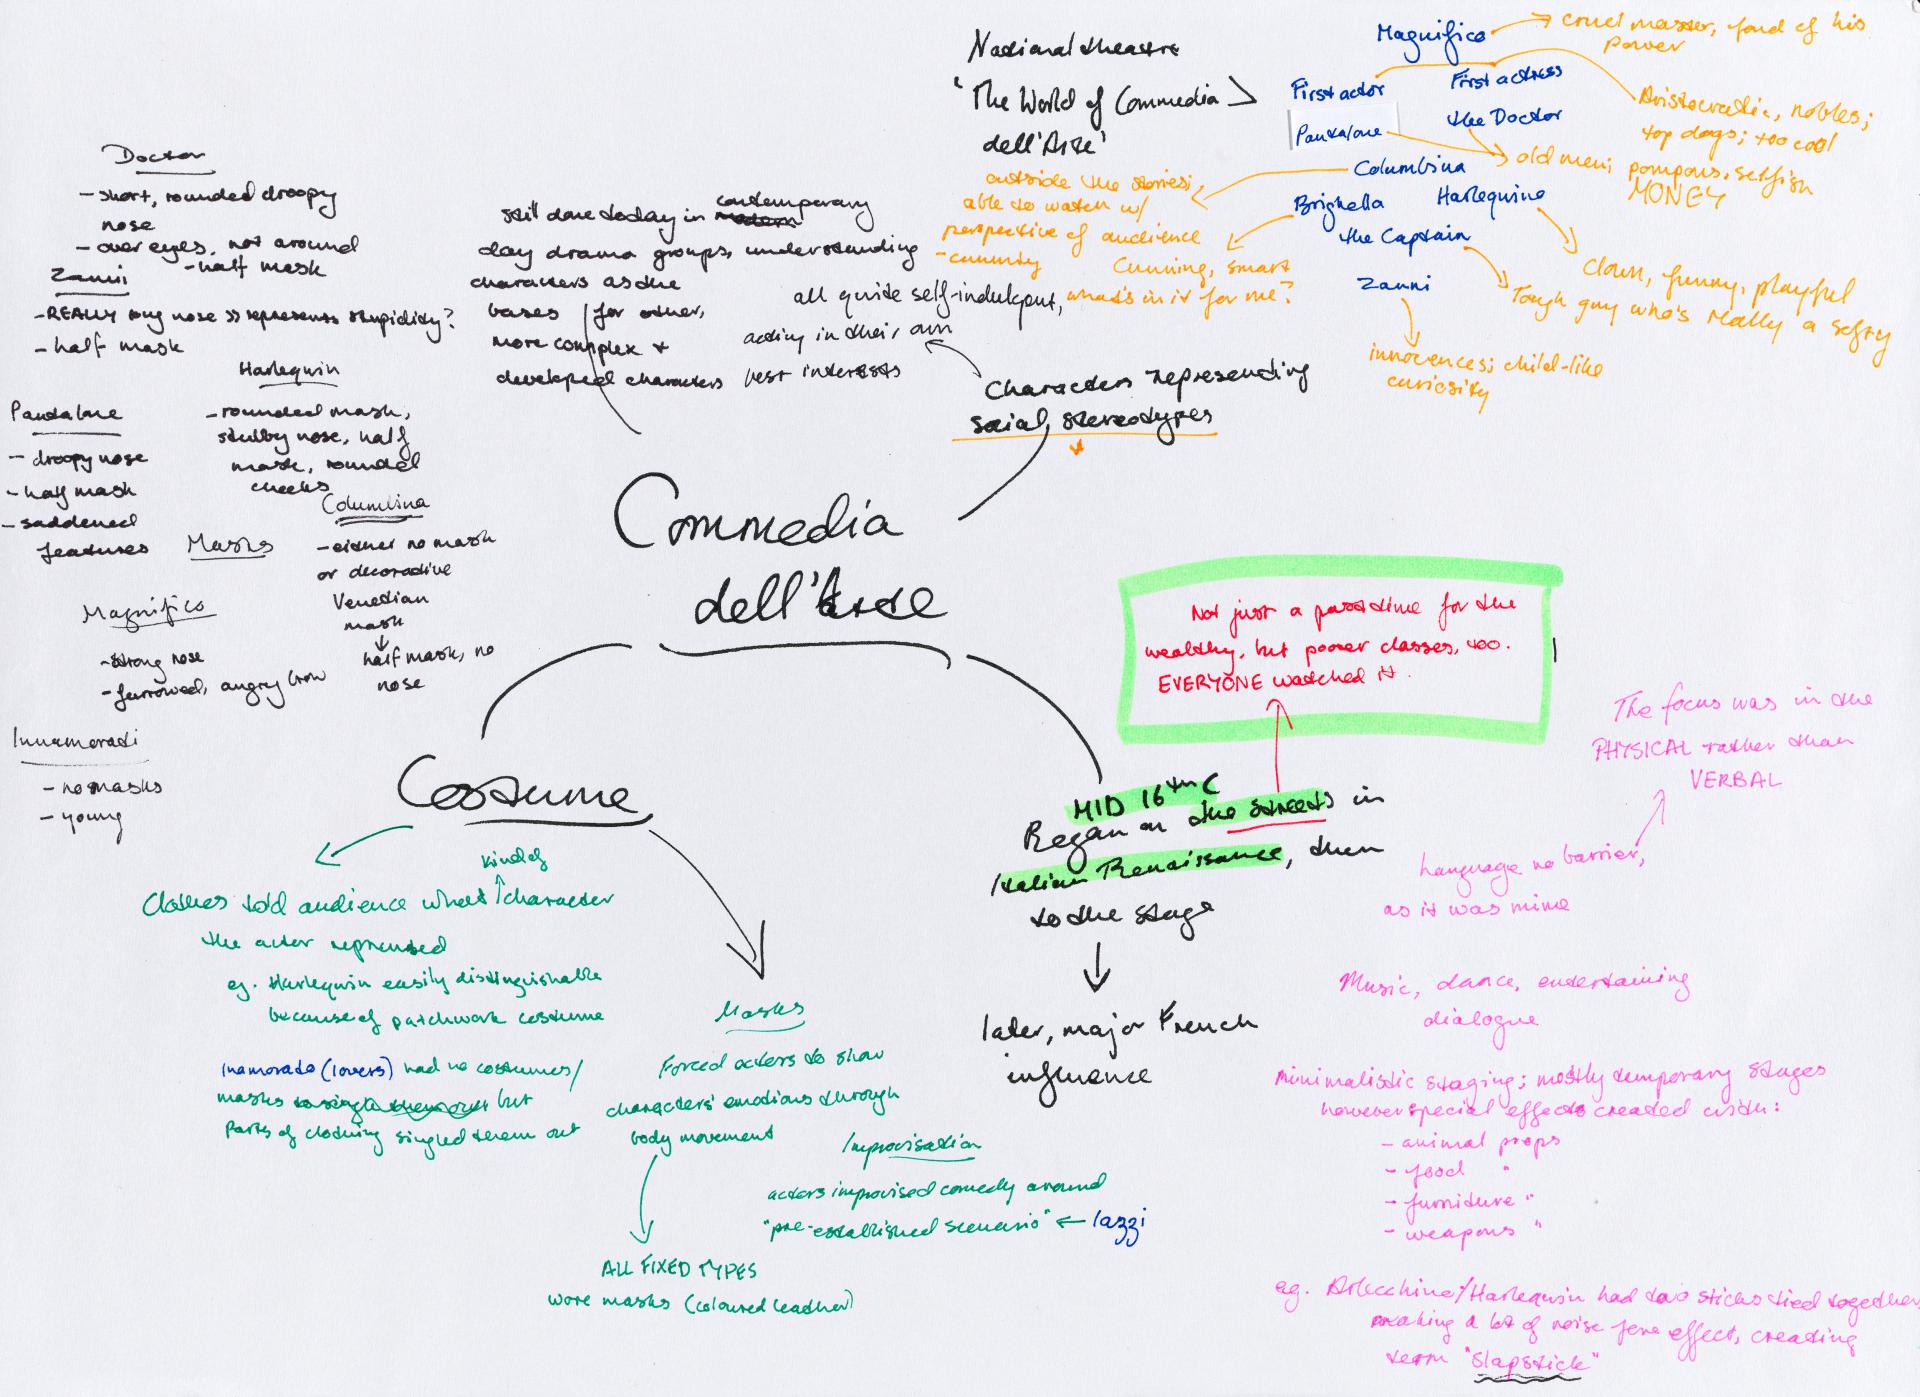 National theatre
'The World of Commedia
dell'Arte'
Magnifico
cruel master, fond of his
power
First actor
First actress
Aristocratic, nobles;
top dogs; too cool
Pantalone
the Doctor
old men; pompous, selfish
MONEY
Columbina
outside the stories;
able to watch w/
perspective of audience
- cunning
Brighella
Cunning, smart
what's in it for me?
Harlequino
Clown, funny, playful
the Captain
Tough guy who's really a softy
Zanni
innocences; child-like
curiosity
Characters representing
social stereotypes
all quite self-indulgent,
acting in their own
best interests
still done today in contemporary
day drama groups, understanding
characters as the
bases for other,
more complex +
developed characters
Doctor
- short, rounded droopy
nose
- over eyes, not around
- half mask
Zanni
- REALLY long nose >> represents stupidity?
- half mask
Harlequin
- rounded mask,
stubby nose, half
mask, rounded
cheeks
Pantalone
- droopy nose
- half mask
- saddened
features
Masks
Columbina
- either no mask
or decorative
Venetian
mask
half mask, no
nose
Magnifico
- strong nose
- furrowed, angry brow
Innamorati
- no masks
- young
Commedia
dell'Arte
Costume
Clothes told audience what kind of character
the actor reprensed
eg. Harlequin easily distinguishable
because of patchwork costume
inamorato (lovers) had no costumes/
masks to single them out but
parts of clothing singled them out
Masks
Forced actors to show
characters' emotions through
body movement
ALL FIXED TYPES
wore masks (coloured leather)
Improvisation
actors improvised comedy around
"pre-established scenario" ← lazzi
Not just a passtime for the
wealthy, but poorer classes, too.
EVERYONE watched it.
MID 16th C
Began on the streets in
Italian Renaissance, then
to the stage
later, major French
influence
The focus was in the
PHYSICAL rather than
VERBAL
Language no barrier,
as it was mime
Music, dance, entertaining
dialogue
Minimalistic staging; mostly temporary stages
however special effects created with:
- animal props
- food "
- furniture "
- weapons "
eg. Arlecchino/Harlequin had two sticks tied together,
making a lot of noise for effect, creating
term "slapstick"